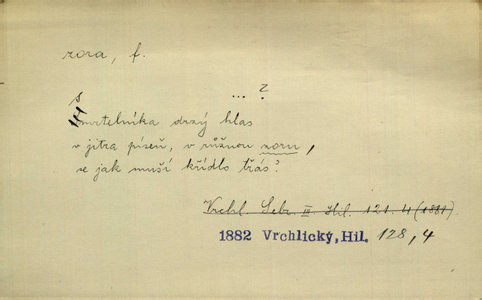 zora, f.
... ?
Smrtelníka drzý hlas
v jitra píseň, v růžnou zoru,
se jak muší křídlo třás?
Vrchl. Sebr. III. Hil. 121. 4 (1881).
1882 Vrchlický, Hil. 128,4